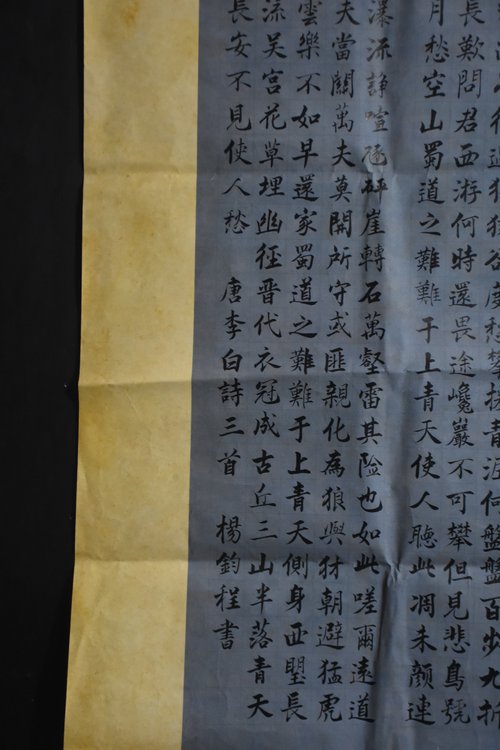 得過猿猱欲度愁攀援青泥何盤盤百步九折
長歎問君西游何時還畏途巉巖不可攀但見悲鳥號
月愁空山蜀道之難難于上青天使人聽此凋朱顏連
瀑流諍喧豗砯崖轉石萬壑雷其險也如此嗟爾遠道
夫當關萬夫莫開所守或匪親化為狼與豺朝避猛虎
雲樂不如早還家蜀道之難難于上青天側身西望長
流吳宮花草埋幽徑晉代衣冠成古丘三山半落青天
長安不見使人愁 唐李白詩三首 楊鈞程書